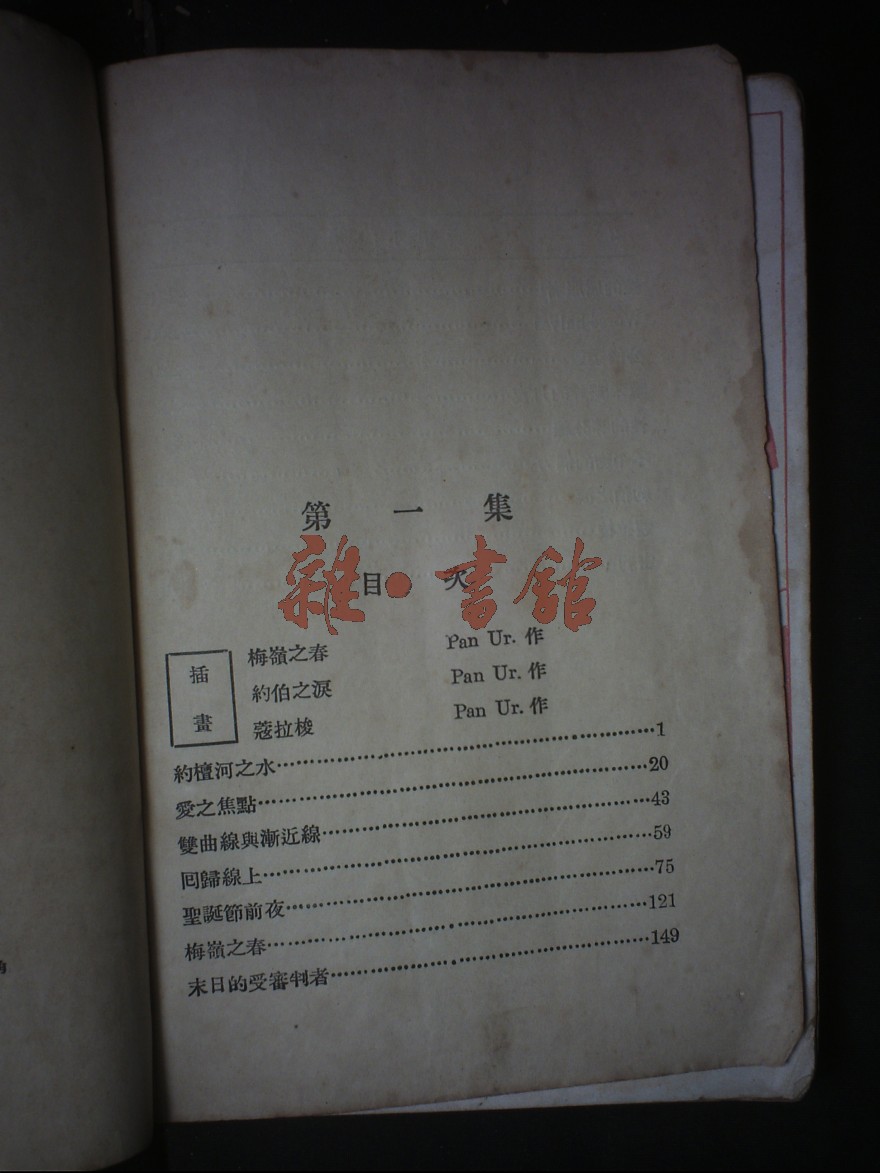 第一集
目次
雜·書館
插畫
梅嶺之春 Pan Ur. 作
約伯之淚 Pan Ur. 作
蔻拉梭 Pan Ur. 作
約檀河之水……1
愛之焦點……20
雙曲線與漸近線……43
囘歸線上……59
聖誕節前夜……75
梅嶺之春……121
末日的受審判者……149